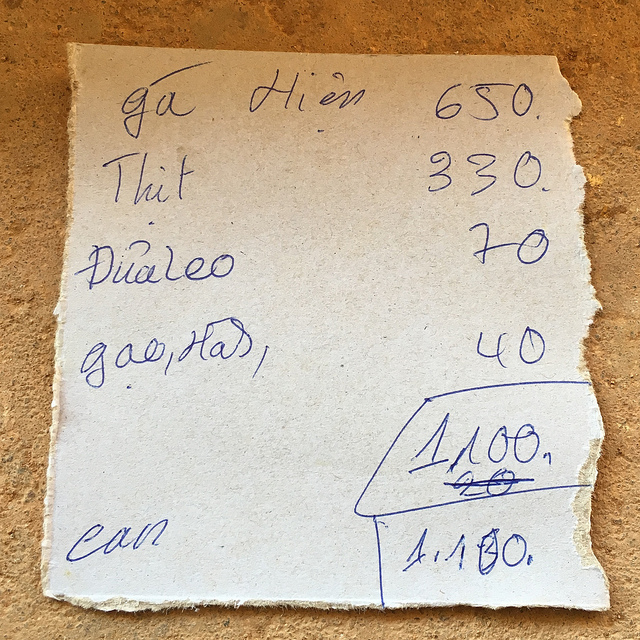 gà Hiện 650.
Thịt 330.
Dưaleo 70
gạo, Hàs, 40
1,100.
20
can 1.180.